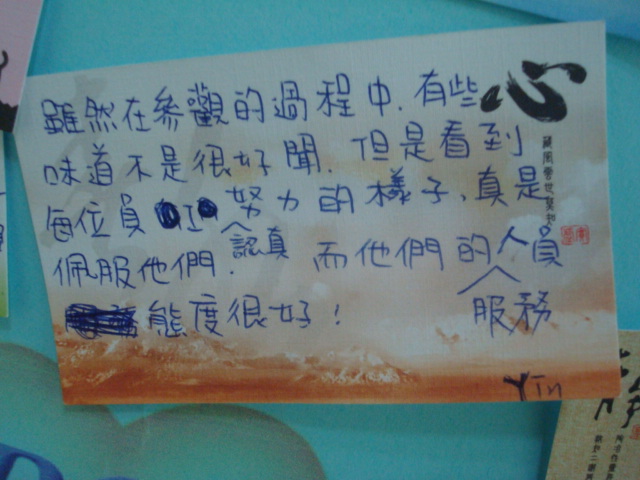 雖然在參觀的過程中,有些
味道不是很好聞,但是看到
每位員工努力認真的樣子,真是
佩服他們. 而他們的服務人員
態度很好!
Yin
心